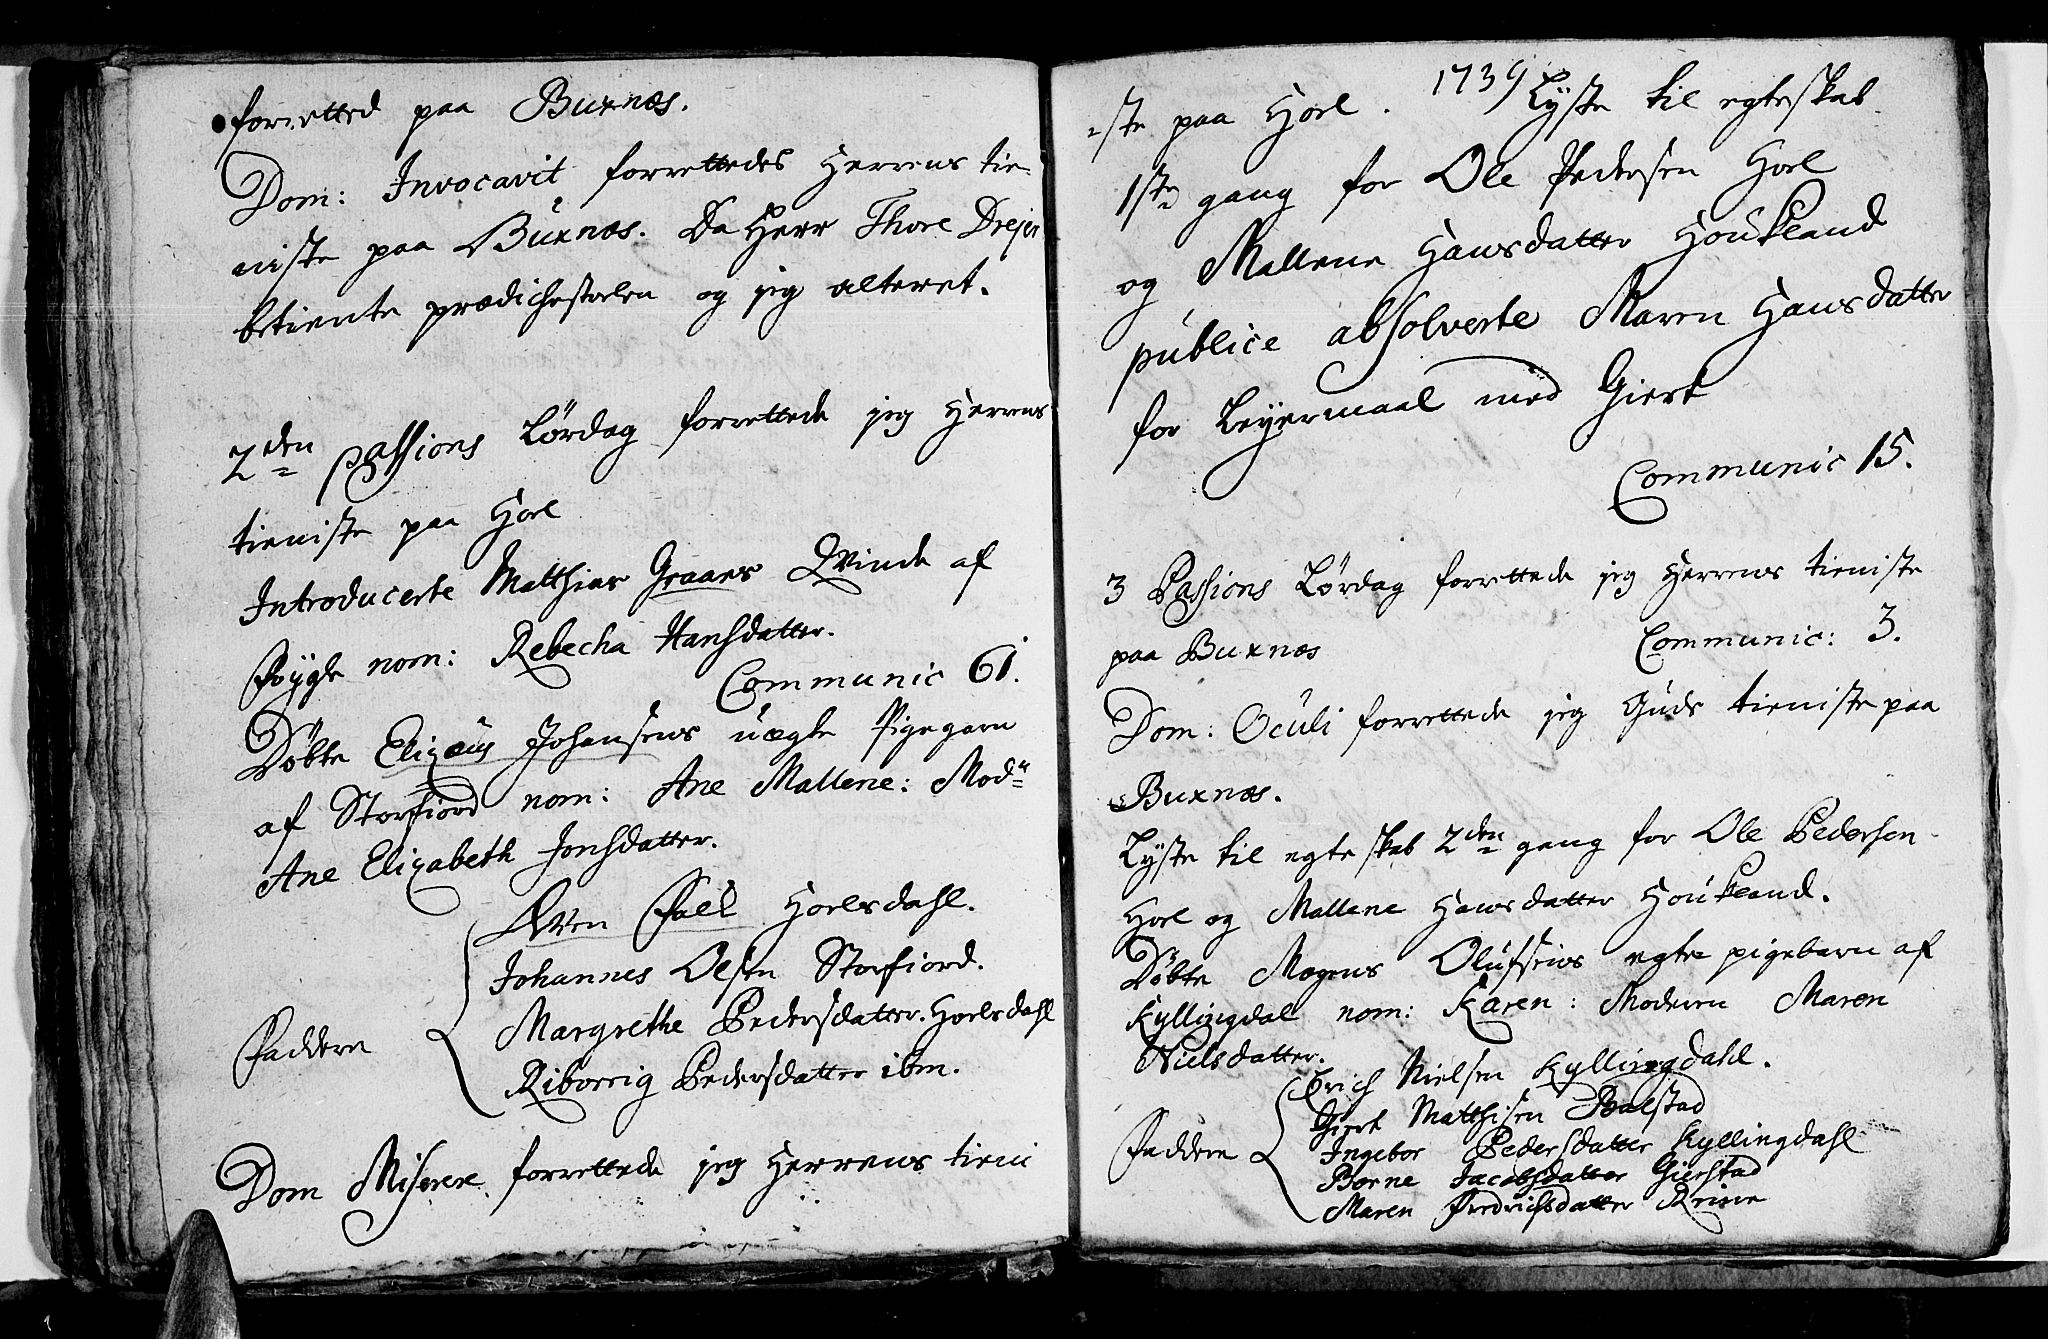 forretted paa Buxnæs.
Dom: Invocavit forrettedes Herrens tie-
niste paa Buxnæs. Da Herr Thore Drejer
betiente prædichestoelen og jeg alteret.
2den passions Lørdag forrettede jeg Herrens
tieniste paa Hoel
Introducerte Matthias Graaes Qvinde af
Føygle nom: Rebecha Hansdatter.
Communic 61.
Døbte Elizæus Johansens uægte Pigebarn
af Storfiord nom: Ane Mallene: Modr
Ane Elizabeth Jonsdatter.
Sven Falk Hoelsdahl.
Johannes Olsen Storfiord.
Faddere Margrethe Pedersdatter. Hoelsdahl
Riborrig Pedersdatter ibm.
Dom Miserere forrettede jeg Herrens tieni
1739
-ste paa Hoel. Lyste til egteskab
1ste gang for Ole Pedersen Hoel
og Mallene Hansdatter Houkland
publice absolverte Maren Hansdatter
for Leyermaal med Giert
Communic 15.
3 Passions Lørdag forrettede jeg Herrens tieniste
paa Buxnæs Communic: 3.
Dom: Oculi forrettede jeg Guds tieniste paa
Buxnæs.
Lyste til egteskab 2den gang for Ole Pedersen
Hoel og Mallene Hansdatter Houkland.
Døbte Mogens Olufsens egte pigebarn af
Kyllingdal nom: Karen: Moderen Maren
Nielsdatter.
Erich Nielsen Kyllingdahl.
Giert Matthisen Balstad
Faddere Ingebor Pedersdatter Kyllingdahl
Borne Jacobsdatter Gierstad
Maren Fredrichsdatter Reine